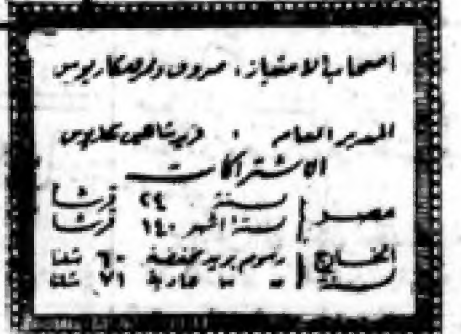 أصحاب الامتياز: صروف ونمر ومكاريوس
المدير العام : فريد شاهين مكاريوس
الاشتراكات
مصر سنة ٢٤ قرشاً
ستة أشهر ١٤٠ قرشاً
الخارج رسوم بريد مخفضة ٦٠ شلناً
سنة " " عادية ٧١ شلناً